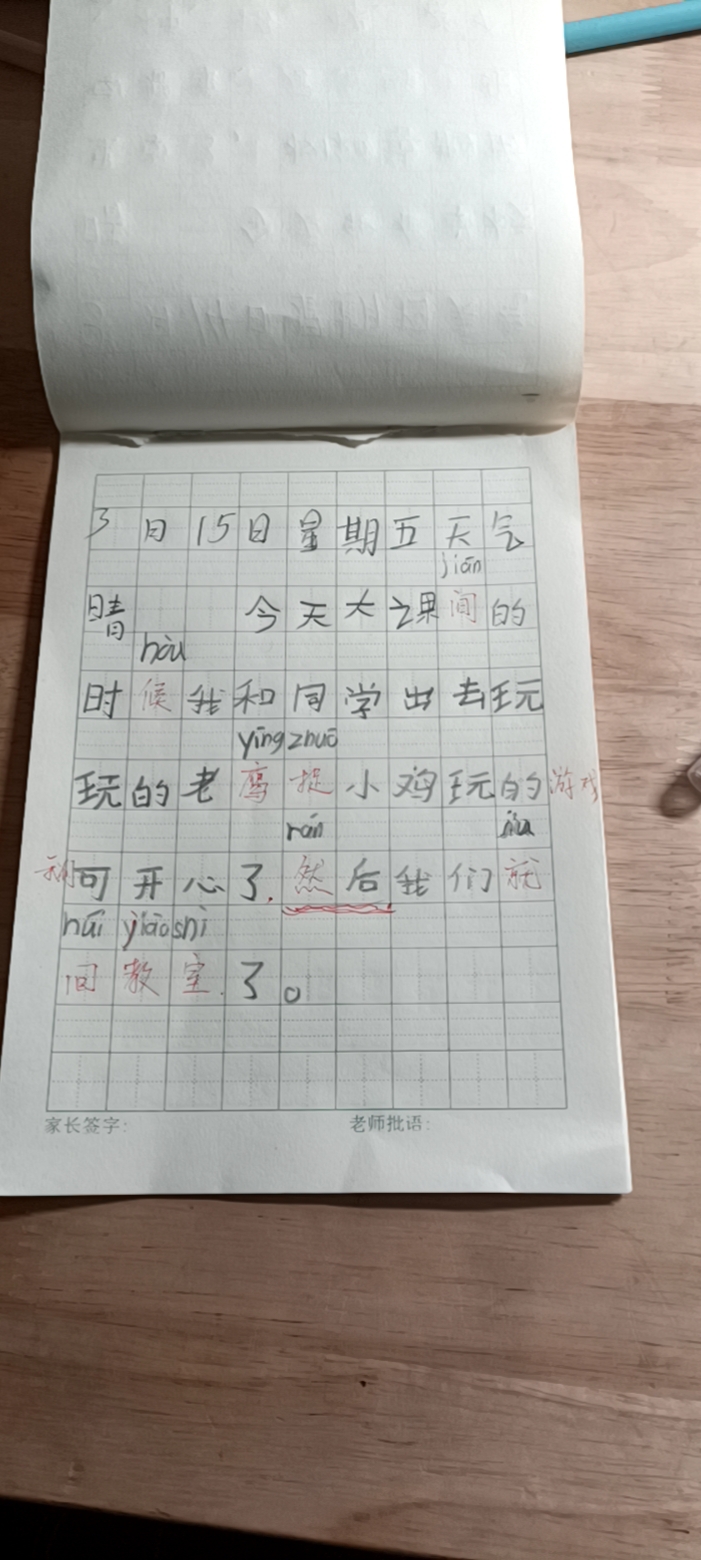 3日15日星期五天气
jiān
晴 今天大课间的
hòu
时候我和同学出去玩
yīng zhuō
玩的老鹰捉小鸡玩的游戏
rán jiù
可开心了,然后我们就
huí jiào shì
回教室了。
家长签字: 老师批语: